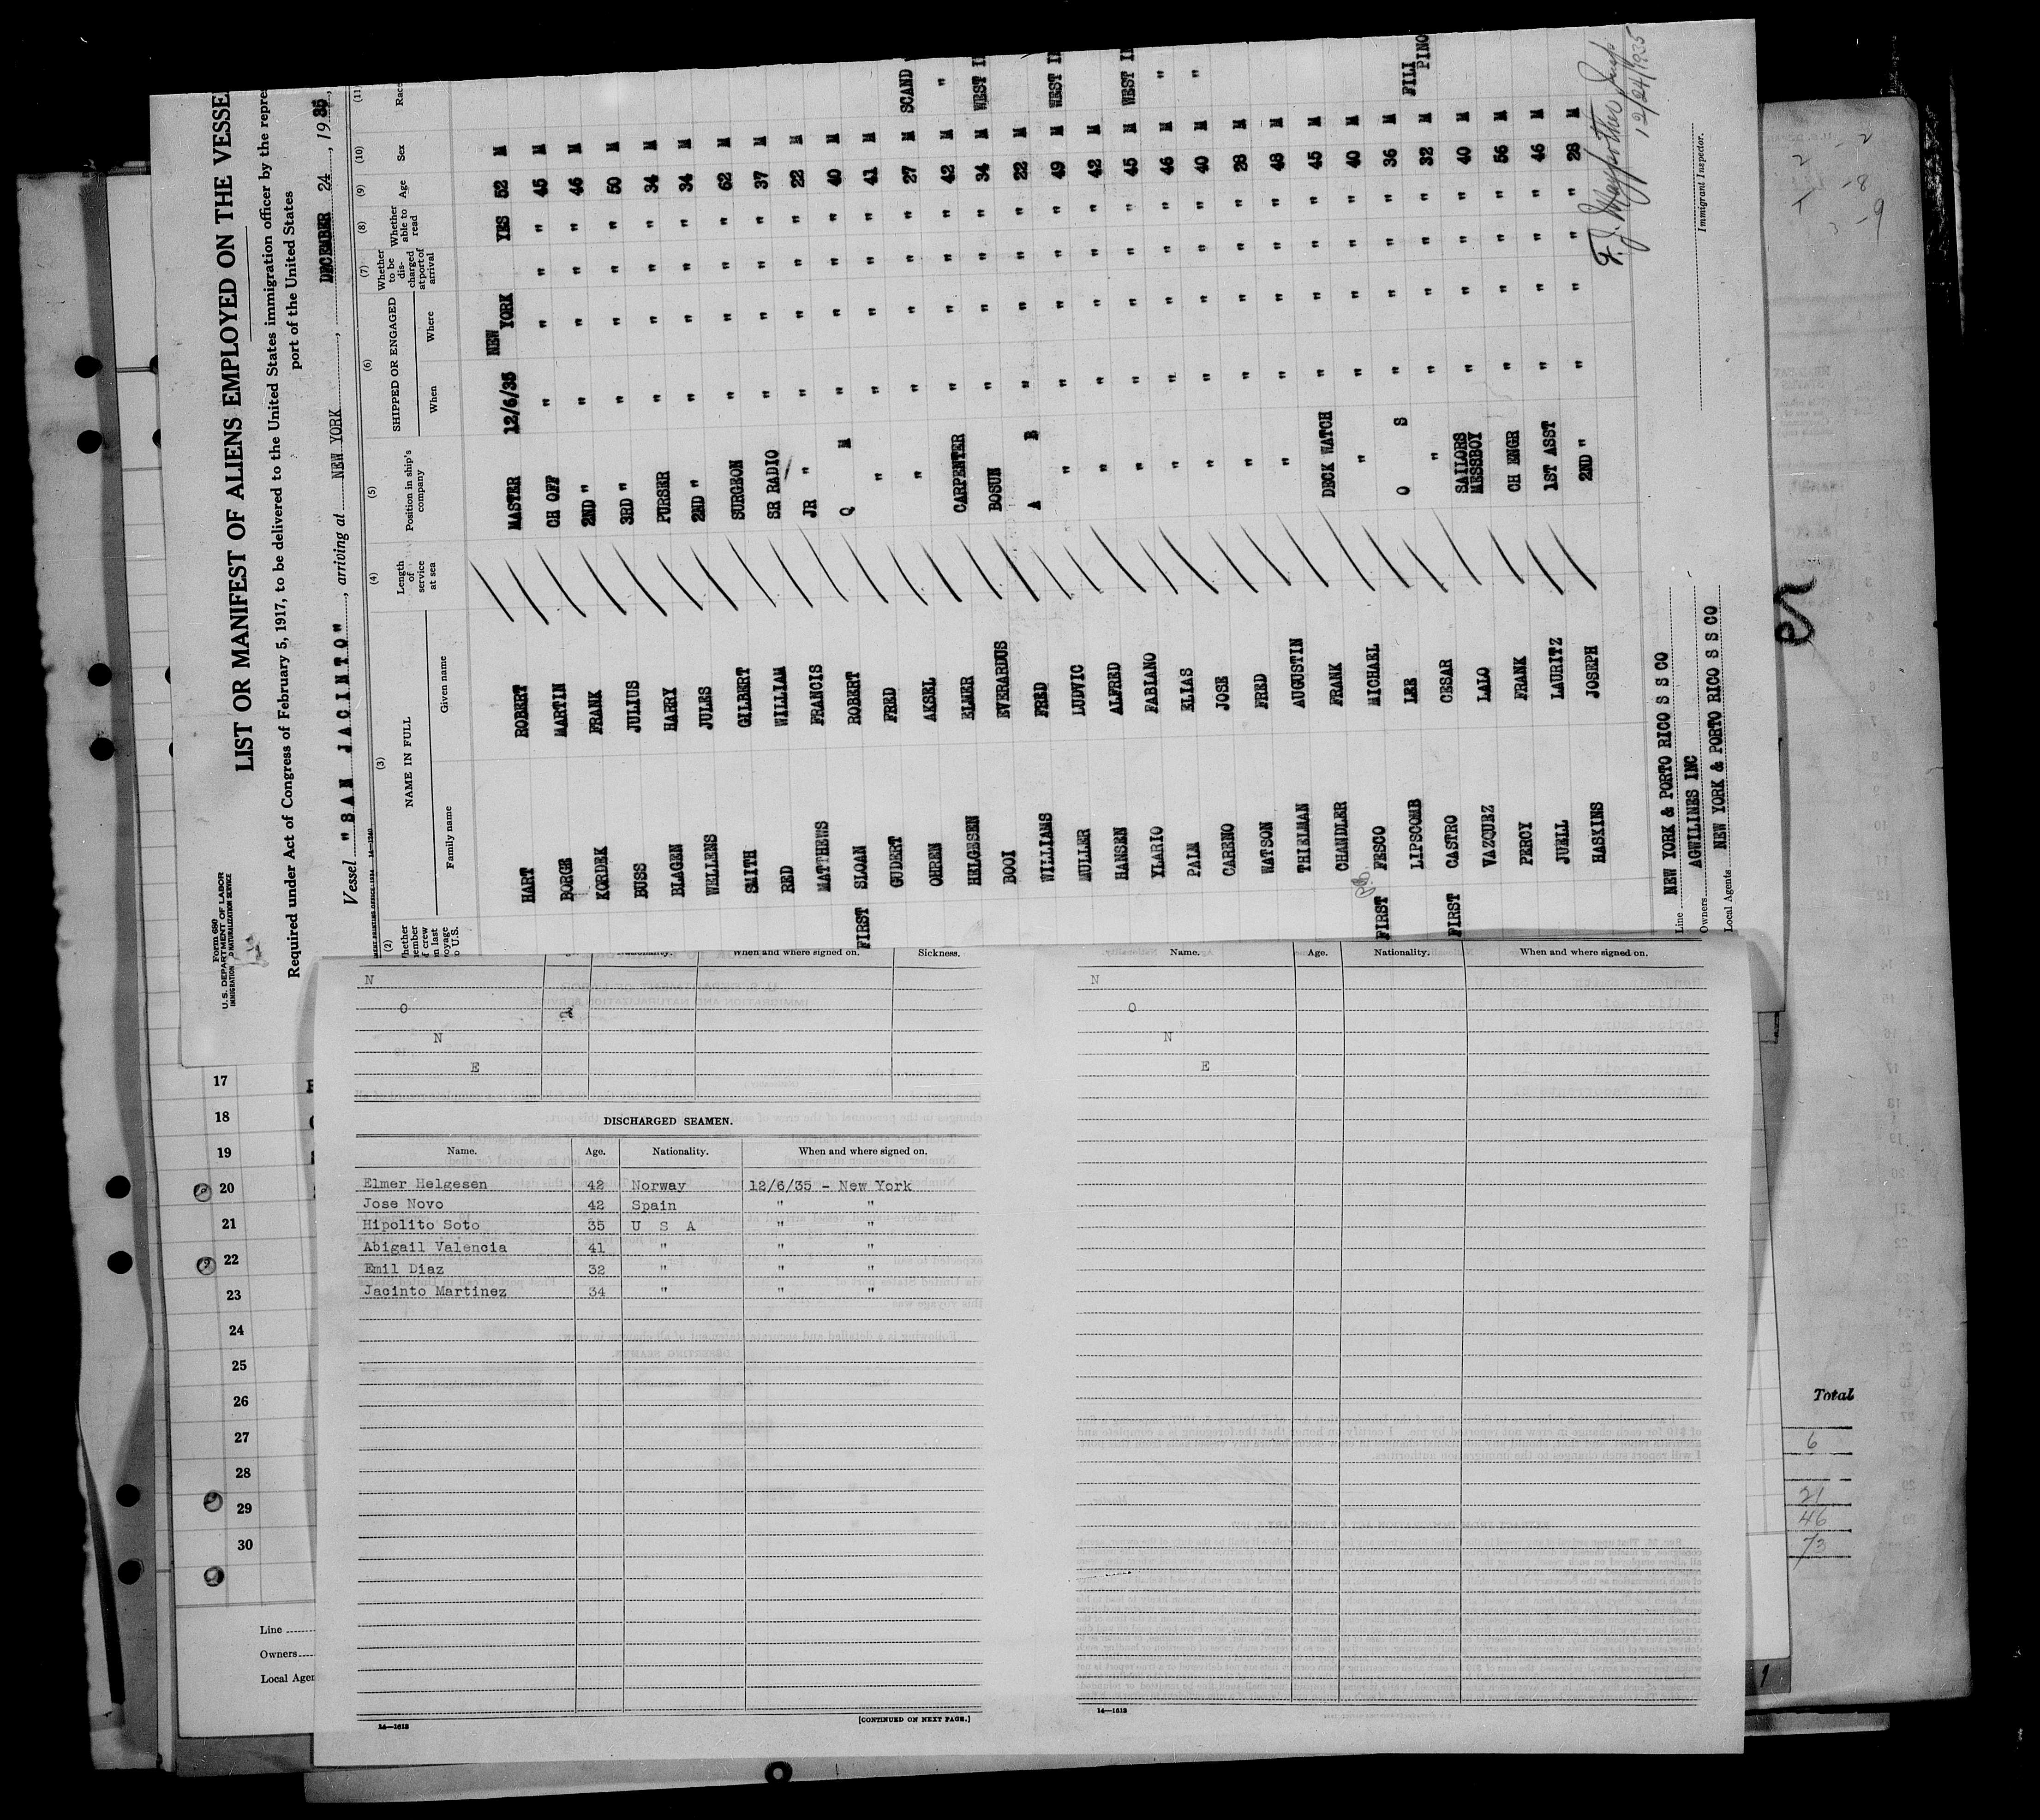 Form 680
U. S. DEPARTMENT OF LABOR
IMMIGRATION & NATURALIZATION SERVICE
LIST OR MANIFEST OF ALIENS EMPLOYED ON THE VESSE
Required under Act of Congress of February 5, 1917, to be delivered to the United States immigration officer by the repre
port of the United States
Vessel "SAN JACINTO", arriving at NEW YORK, DECEMBER 24, 1935,
(2) (3) (4) (5) (6) (7) (8) (9) (10) (11)
NAME IN FULL
Family name Given name
Length of service at sea
Position in ship's company
SHIPPED OR ENGAGED
When Where
Whether to be discharged at port of arrival
Whether able to read
Age
Sex
Race
HART ROBERT MASTER 12/6/35 NEW YORK YES 52 M
BORGE MARTIN CH OFF " " " " 45 M
KORDEK FRANK 2ND " " " " " 46 M
BUSS JULIUS 3RD " " " " " 50 M
BLAGEN HARRY PURSER " " " " 34 M
WELLENS JULES 2ND " " " " " 34 M
SMITH GILBERT SURGEON " " " " 62 M
RED WILLIAM SR RADIO " " " " 37 M
MATTHEWS FRANCIS JR " " " " " 22 M
FIRST SLOAN ROBERT Q M " " " " 40 M
GUDERT FRED " " " " " 41 M
OHREN AKSEL " " " " " 27 M SCAND
HELGESEN ELMER CARPENTER " " " " 42 M "
BOOI EVERARDUS BOSUN " " " " 34 M WEST I
WILLIAMS FRED A B " " " " 22 M
MULLER LUDVIC " " " " " 49 M WEST I
HANSEN ALFRED " " " " " 42 M
XLARIO FABIANO " " " " " 45 M WEST I
PALM ELIAS " " " " " 46 M "
CARENO JOSE " " " " " 40 M "
WATSON FRED " " " " " 28 M
THIELMAN AUGUSTIN " " " " " 48 M
CHANDLER FRANK DECK WATCH " " " " 45 M
FIRST FESCO MICHAEL " " " " " 40 M
LIPSCOMB LEE O S " " " " 36 M
FIRST CASTRO CESAR " " " " " 32 M FILI PINO
VAZQUEZ LALO SAILORS MESSBOY " " " " 40 M
PERCY FRANK CH ENGR " " " " 56 M
JUELL LAURITZ 1ST ASST " " " " 46 M
HASKINS JOSEPH 2ND " " " " " 28 M
12/24/1935
Immigrant Inspector.
Line NEW YORK & PORTO RICO S S CO
Owners AGWILINES INC
Local Agents NEW YORK & PORTO RICO S S CO
When and where signed on. Sickness.
N
O
N
E
DISCHARGED SEAMEN.
Name. Age. Nationality. When and where signed on.
Elmer Helgesen 42 Norway 12/6/35 - New York
Jose Novo 42 Spain " "
Hipolito Soto 35 U S A " "
Abigail Valencia 41 " " "
Emil Diaz 32 " " "
Jacinto Martinez 34 " " "
14—1613
[CONTINUED ON NEXT PAGE.]
Name. Age. Nationality. When and where signed on.
N
O
N
E
14—1613
17
18
19
20
21
22
23
24
25
26
27
28
29
30
Line
Owners
Local Agen
Total
6
21
46
73